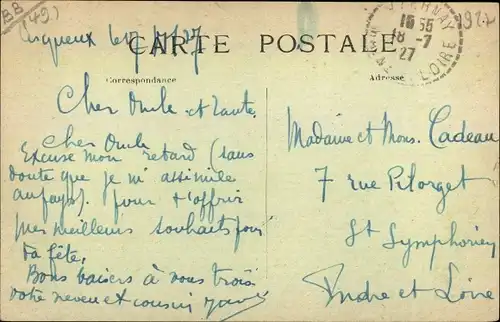 BB
(49)
le 17/7/27
CARTE POSTALE
16 55
18-7
27
LOIRE
1927
Correspondance
Adresse
Cher Oncle et tante,
Cher Oncle
Excuse mon retard (sans
doute que je m'assimile
au pays). pour t'offrir
mes meilleurs souhaits pour
ta fête.
Bons baisers à vous trois
votre neveu et cousin
Madame et Mons. Cadeau
7 rue Pitorget
St Symphorien
Indre et Loire